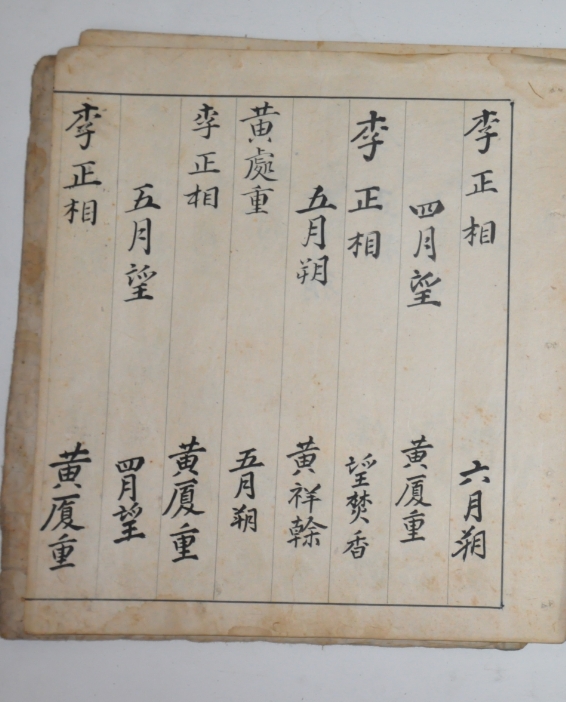 李正相
四月望
李正相
五月朔
黄處重
李正相
五月望
李正相
六月朔
黄厦重
望焚香
黄祥榦
五月朔
黄厦重
四月望
黄厦重